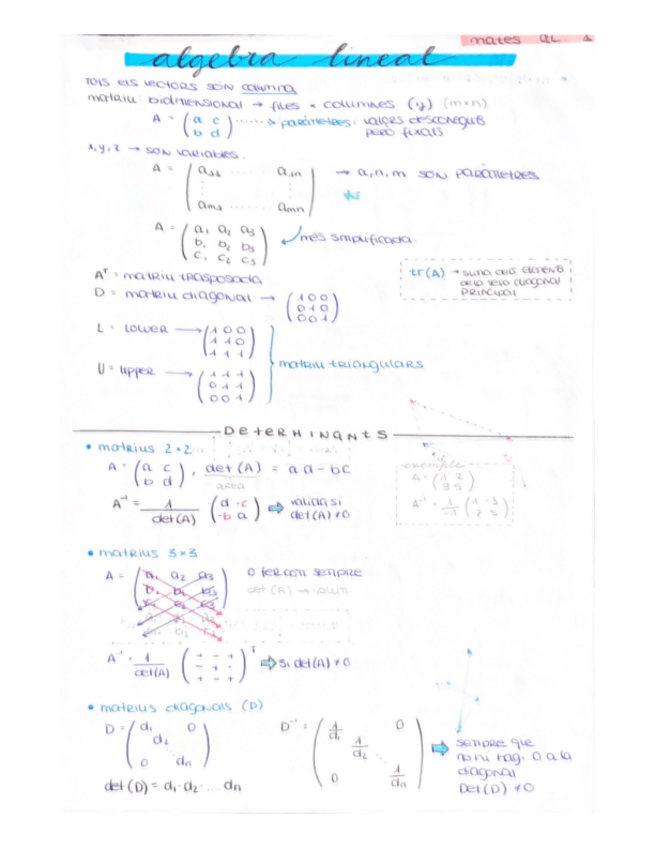 mates QL. 1
algebra lineal
TOTS ELS VECTORS SÓN columna
matriu: bidimensional → files × columnes (y) (m×n)
A = (a c
b d) ......> paràmetres: valors desconeguts
però fixats
x, y, z → són variables.
A = (a11 ........ a1n
⋮ ⋮
am1 ........ amn) → a, n, m són paràmetres
A = (a1 a2 a3
b1 b2 b3
c1 c2 c3) més simplificada.
Aᵀ = matriu trasposada
tr(A) → suma dels elements
de la seva diagonal
PRINCIPAL
D = matriu diagonal → (1 0 0
0 1 0
0 0 1)
L = LOWER → (1 0 0
1 1 0
1 1 1)
U = upper → (1 1 1
0 1 1
0 0 1)
matriu triangulars
DETERMINANTS
• matrius 2×2
A = (a c
b d), det(A) = ad - bc
area
A⁻¹ = 1/det(A) (d -c
-b a) ⇒ vàlida si
det(A) ≠ 0
exemple
A = (1 2
3 5)
A⁻¹ = 1/-1 (1 -3
-2 5)
• matrius 3×3
A = (a1 a2 a3
b1 b2 b3
c1 c2 c3) o fer com sempre
det(A) → volum
A⁻¹ = 1/det(A) (+ - +
- + -
+ - +)ᵀ ⇒ Si det(A) ≠ 0
• matrius diagonals (D)
D = (d1 0
d2
⋱
0 dn)
D⁻¹ = (1/d1 0
1/d2
⋱
0 1/dn) ⇒ sempre que
no hi hagi 0 a la
diagonal
Det(D) ≠ 0
det(D) = d1·d2·...dn